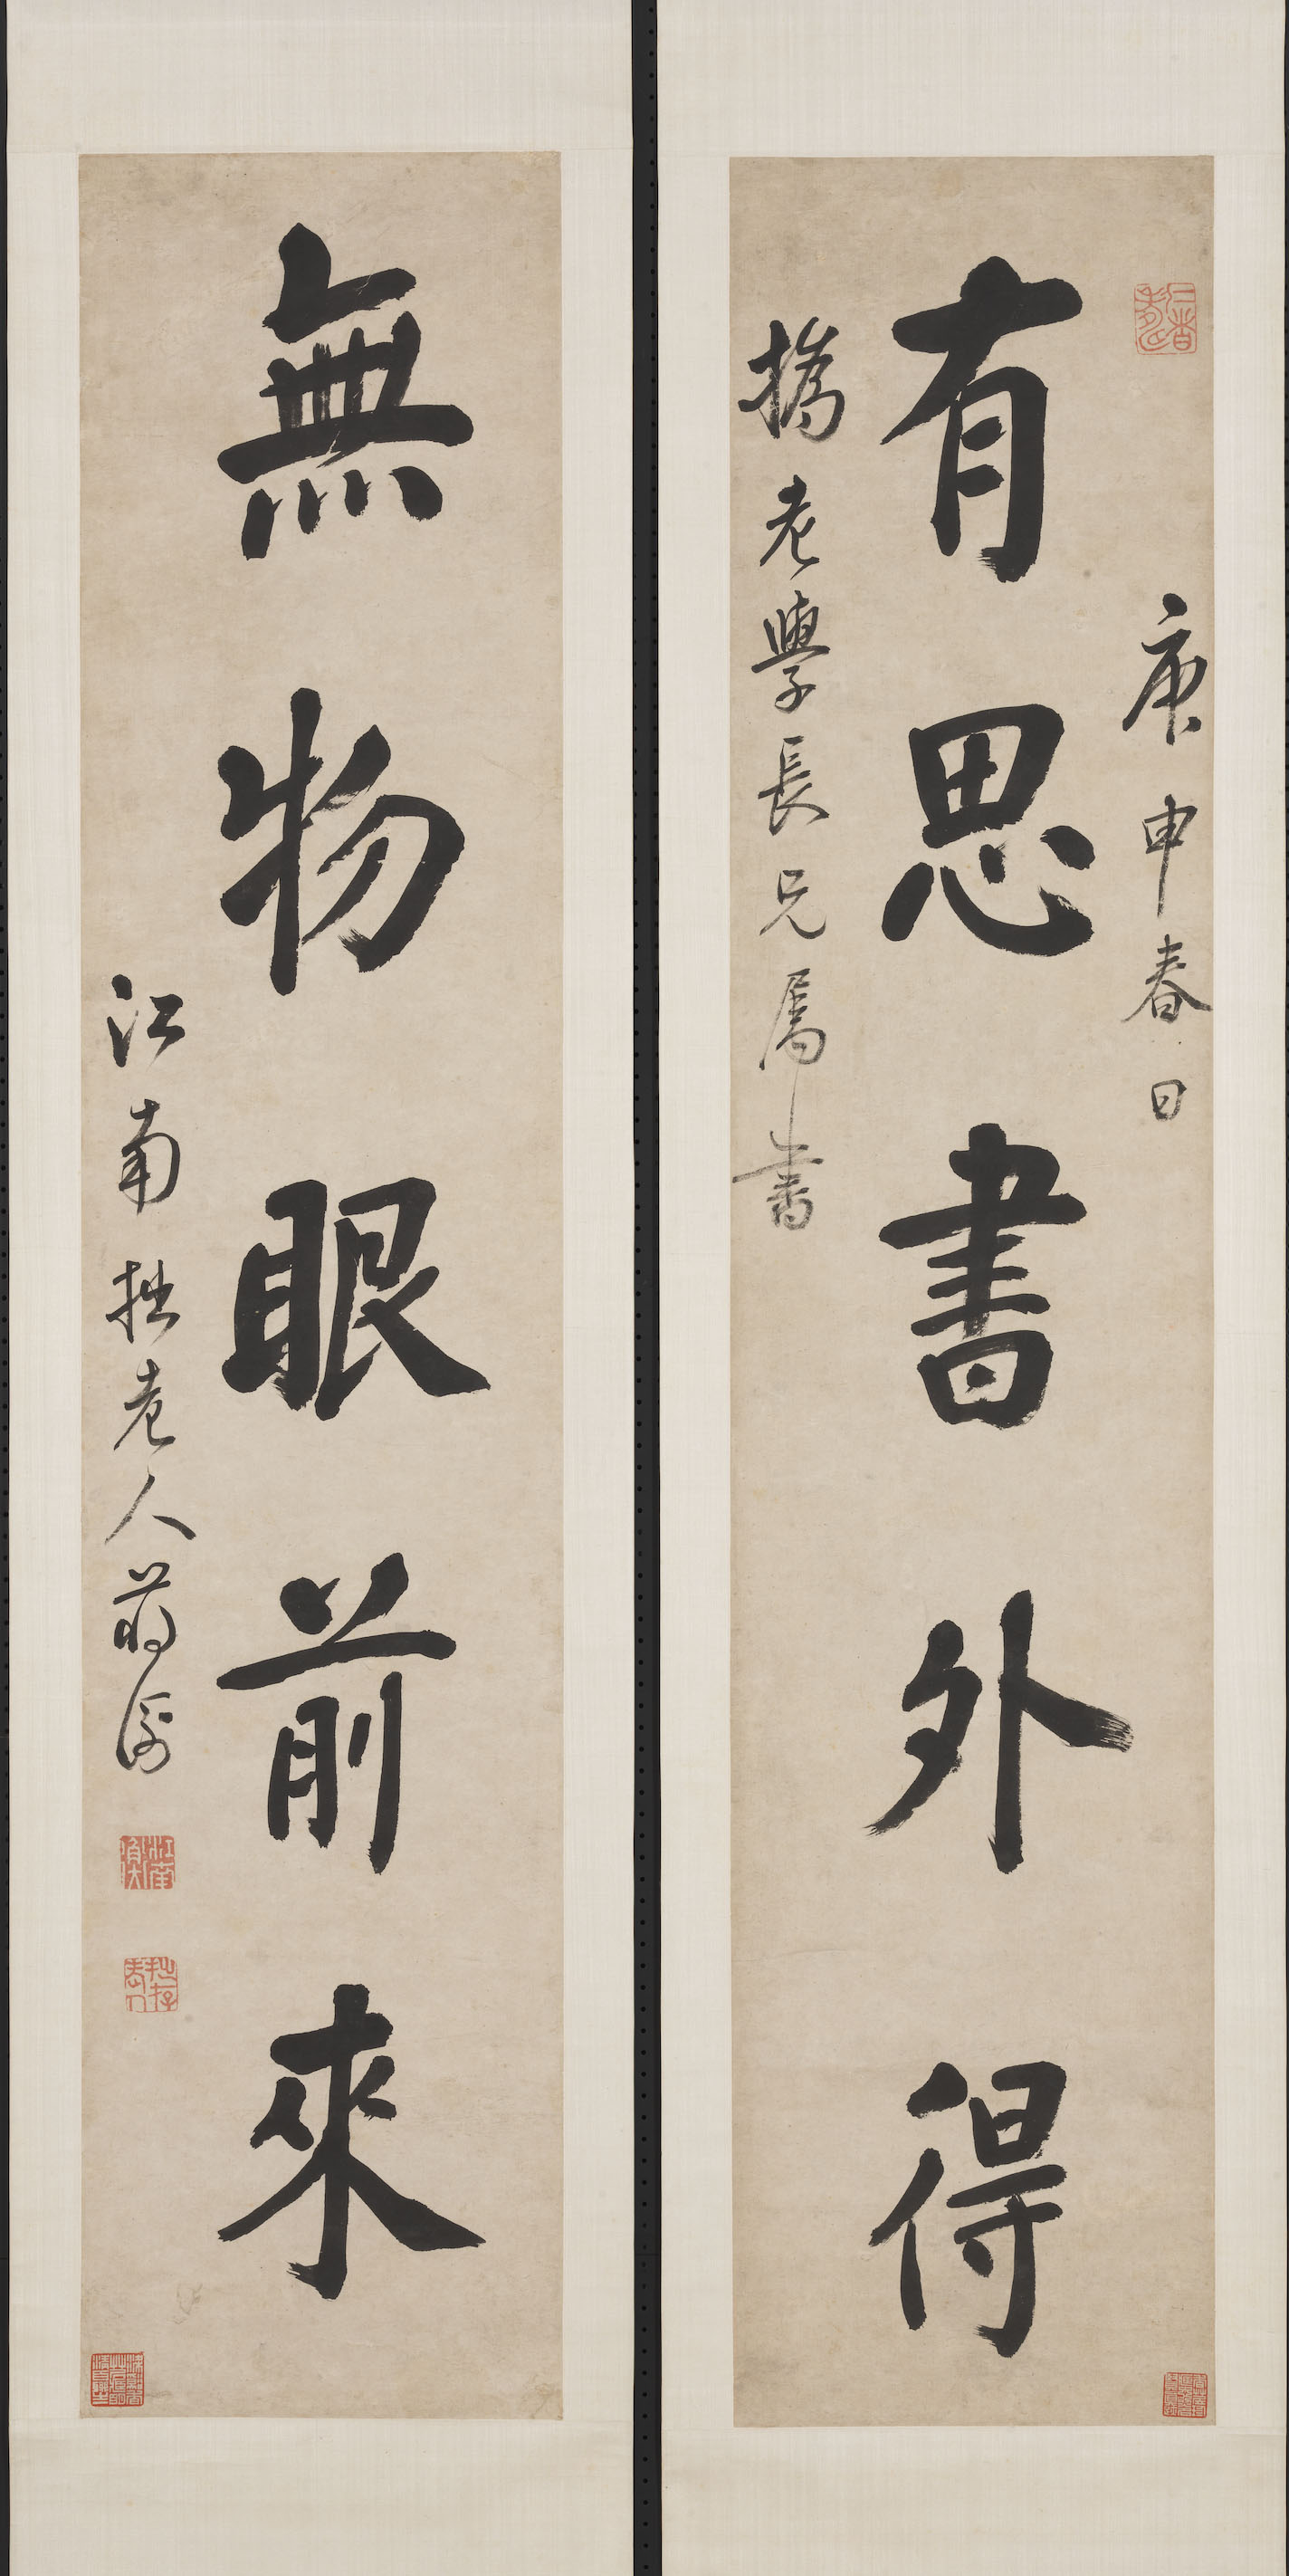 庚申春日
有思書外得
擕老學長兄属書
無物眼前來
江南拙老人蔣衡